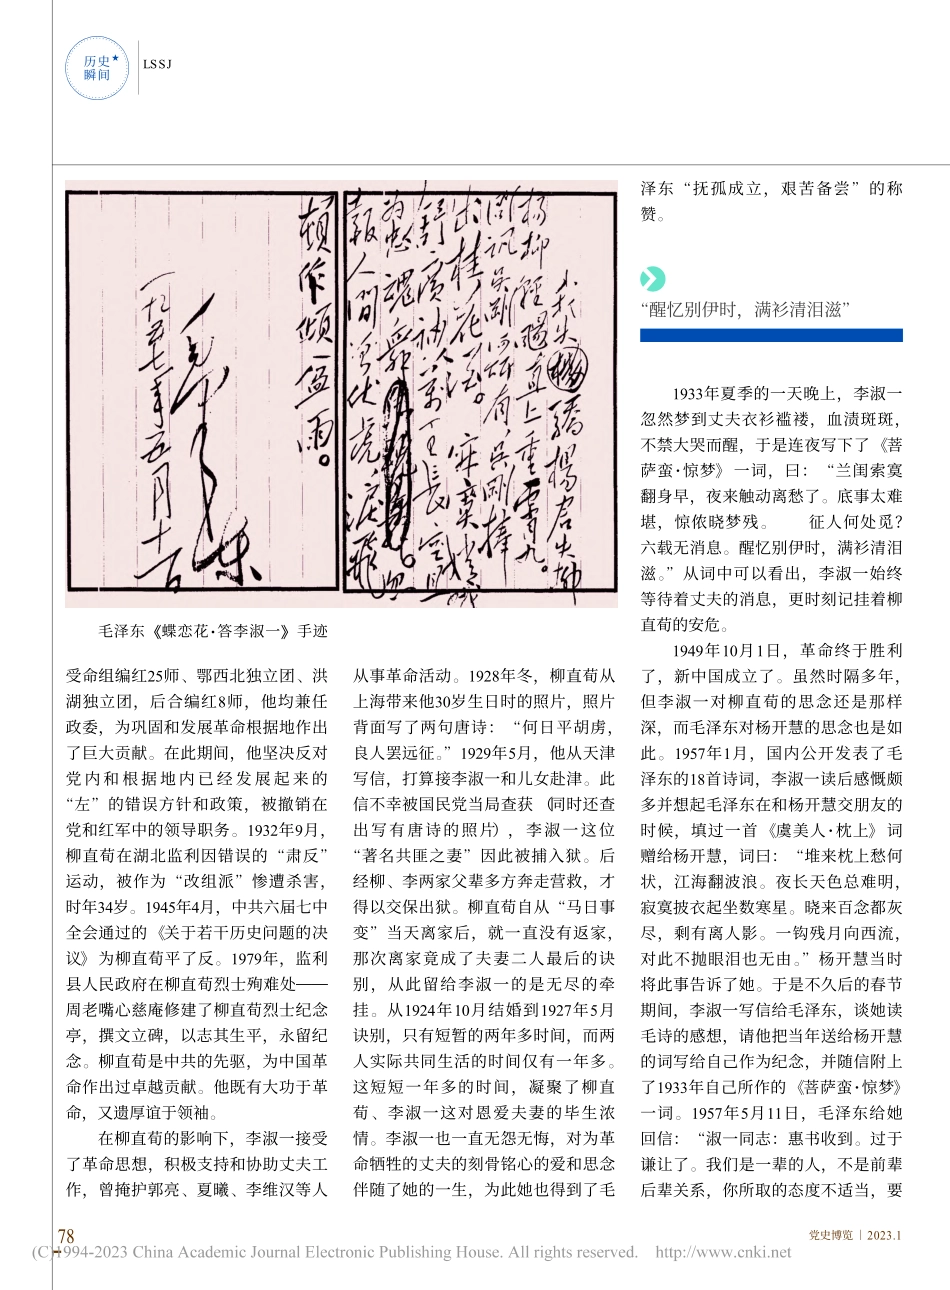 历史
瞬间
LSSJ
我失
骄杨君失
杨柳轻飏直上重霄九。
问讯吴刚何所有，吴刚捧
出桂花酒。
寂寞嫦娥
舒广袖，万里长空且
为忠魂舞。
忽
报人间曾伏虎，泪飞
顿作倾盆雨。
毛泽东
一九五七年五月十一日
毛泽东《蝶恋花·答李淑一》手迹
受命组编红25师、鄂西北独立团、洪
湖独立团，后合编红8师，他均兼任
政委，为巩固和发展革命根据地作出
了巨大贡献。在此期间，他坚决反对
党内和根据地内已经发展起来的
“左”的错误方针和政策，被撤销在
党和红军中的领导职务。1932年9月，
柳直荀在湖北监利因错误的“肃反”
运动，被作为“改组派”惨遭杀害，
时年34岁。1945年4月，中共六届七中
全会通过的《关于若干历史问题的决
议》为柳直荀平了反。1979年，监利
县人民政府在柳直荀烈士殉难处——
周老嘴心慈庵修建了柳直荀烈士纪念
亭，撰文立碑，以志其生平，永留纪
念。柳直荀是中共的先驱，为中国革
命作出过卓越贡献。他既有大功于革
命，又遗厚谊于领袖。
在柳直荀的影响下，李淑一接受
了革命思想，积极支持和协助丈夫工
作，曾掩护郭亮、夏曦、李维汉等人
从事革命活动。1928年冬，柳直荀从
上海带来他30岁生日时的照片，照片
背面写了两句唐诗：“何日平胡虏，
良人罢远征。”1929年5月，他从天津
写信，打算接李淑一和儿女赴津。此
信不幸被国民党当局查获（同时还查
出写有唐诗的照片），李淑一这位
“著名共匪之妻”因此被捕入狱。后
经柳、李两家父辈多方奔走营救，才
得以交保出狱。柳直荀自从“马日事
变”当天离家后，就一直没有返家，
那次离家竟成了夫妻二人最后的诀
别，从此留给李淑一的是无尽的牵
挂。从1924年10月结婚到1927年5月
诀别，只有短暂的两年多时间，而两
人实际共同生活的时间仅有一年多。
这短短一年多的时间，凝聚了柳直
荀、李淑一这对恩爱夫妻的毕生浓
情。李淑一也一直无怨无悔，对为革
命牺牲的丈夫的刻骨铭心的爱和思念
伴随了她的一生，为此她也得到了毛
泽东“抚孤成立，艰苦备尝”的称
赞。
“醒忆别伊时，满衫清泪滋”
1933年夏季的一天晚上，李淑一
忽然梦到丈夫衣衫褴褛，血渍斑斑，
不禁大哭而醒，于是连夜写下了《菩
萨蛮·惊梦》一词，曰：“兰闺索寞
翻身早，夜来触动离愁了。底事太难
堪，惊侬晓梦残。　　征人何处觅？
六载无消息。醒忆别伊时，满衫清泪
滋。”从词中可以看出，李淑一始终
等待着丈夫的消息，更时刻记挂着柳
直荀的安危。
1949年10月1日，革命终于胜利
了，新中国成立了。虽然时隔多年，
但李淑一对柳直荀的思念还是那样
深，而毛泽东对杨开慧的思念也是如
此。1957年1月，国内公开发表了毛
泽东的18首诗词，李淑一读后感慨颇
多并想起毛泽东在和杨开慧交朋友的
时候，填过一首《虞美人·枕上》词
赠给杨开慧，词曰：“堆来枕上愁何
状，江海翻波浪。夜长天色总难明，
寂寞披衣起坐数寒星。晓来百念都灰
尽，剩有离人影。一钩残月向西流，
对此不抛眼泪也无由。”杨开慧当时
将此事告诉了她。于是不久后的春节
期间，李淑一写信给毛泽东，谈她读
毛诗的感想，请他把当年送给杨开慧
的词写给自己作为纪念，并随信附上
了1933年自己所作的《菩萨蛮·惊梦》
一词。1957年5月11日，毛泽东给她
回信：“淑一同志：惠书收到。过于
谦让了。我们是一辈的人，不是前辈
后辈关系，你所取的态度不适当，要
78
党史博览 | 2023.1
(C)1994-2023 China Academic Journal Electronic Publishing House. All rights reserved. http://www.cnki.net